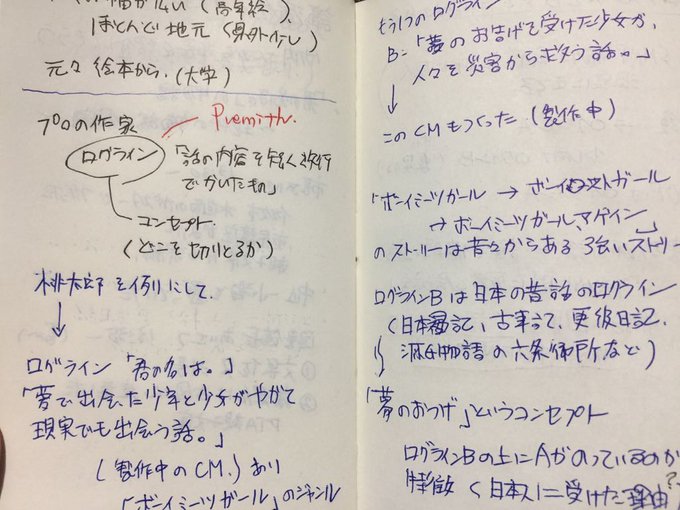 幅が広い (高年絵)、
ほとんど地元 (県外
元々 絵本から、(大学)
プロの作家
Premith.
ログライン 「話の内容を短く 数行
でかいたもの」
コンセプト
(どこを切りとるか)
桃太郎 を例にして、
ログライン 「君の名は。」
「夢で出会った少年と少女がやがて
現実でも出会う話。」
(製作中のCM.) あり
「ボーイミーツガール」のジャンル
もう1つの ログライン
B-「夢のお告げを受けた少女が、
人々を災害から救う話。」
このCMもつくった (製作中)
「ボーイミーツガール → ボーイロストガール
→ ボーイミーツガールアゲイン」
のストーリーは昔々からある 強いストーリー
ログラインBは日本の昔話のログライン
(日本書記、古事記、更級日記、
源氏物語の六条御所など)
「夢のおつげ」というコンセプト
ログラインBの上にAがのっているのが
特徴 (日本人に受けた理由?